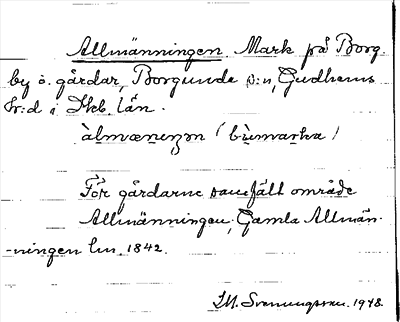 Allmänningen. Mark på Borg
by o. gårdar, Borgunda s:n, Gudhems
hr:d i Skb. län.
àlmænenɡən (bỳmarka)
För gårdarne samfält område
Allmänningen; Gamla Allmän-
-ningen lm 1842.
I.M. Svenungsson. 1948.